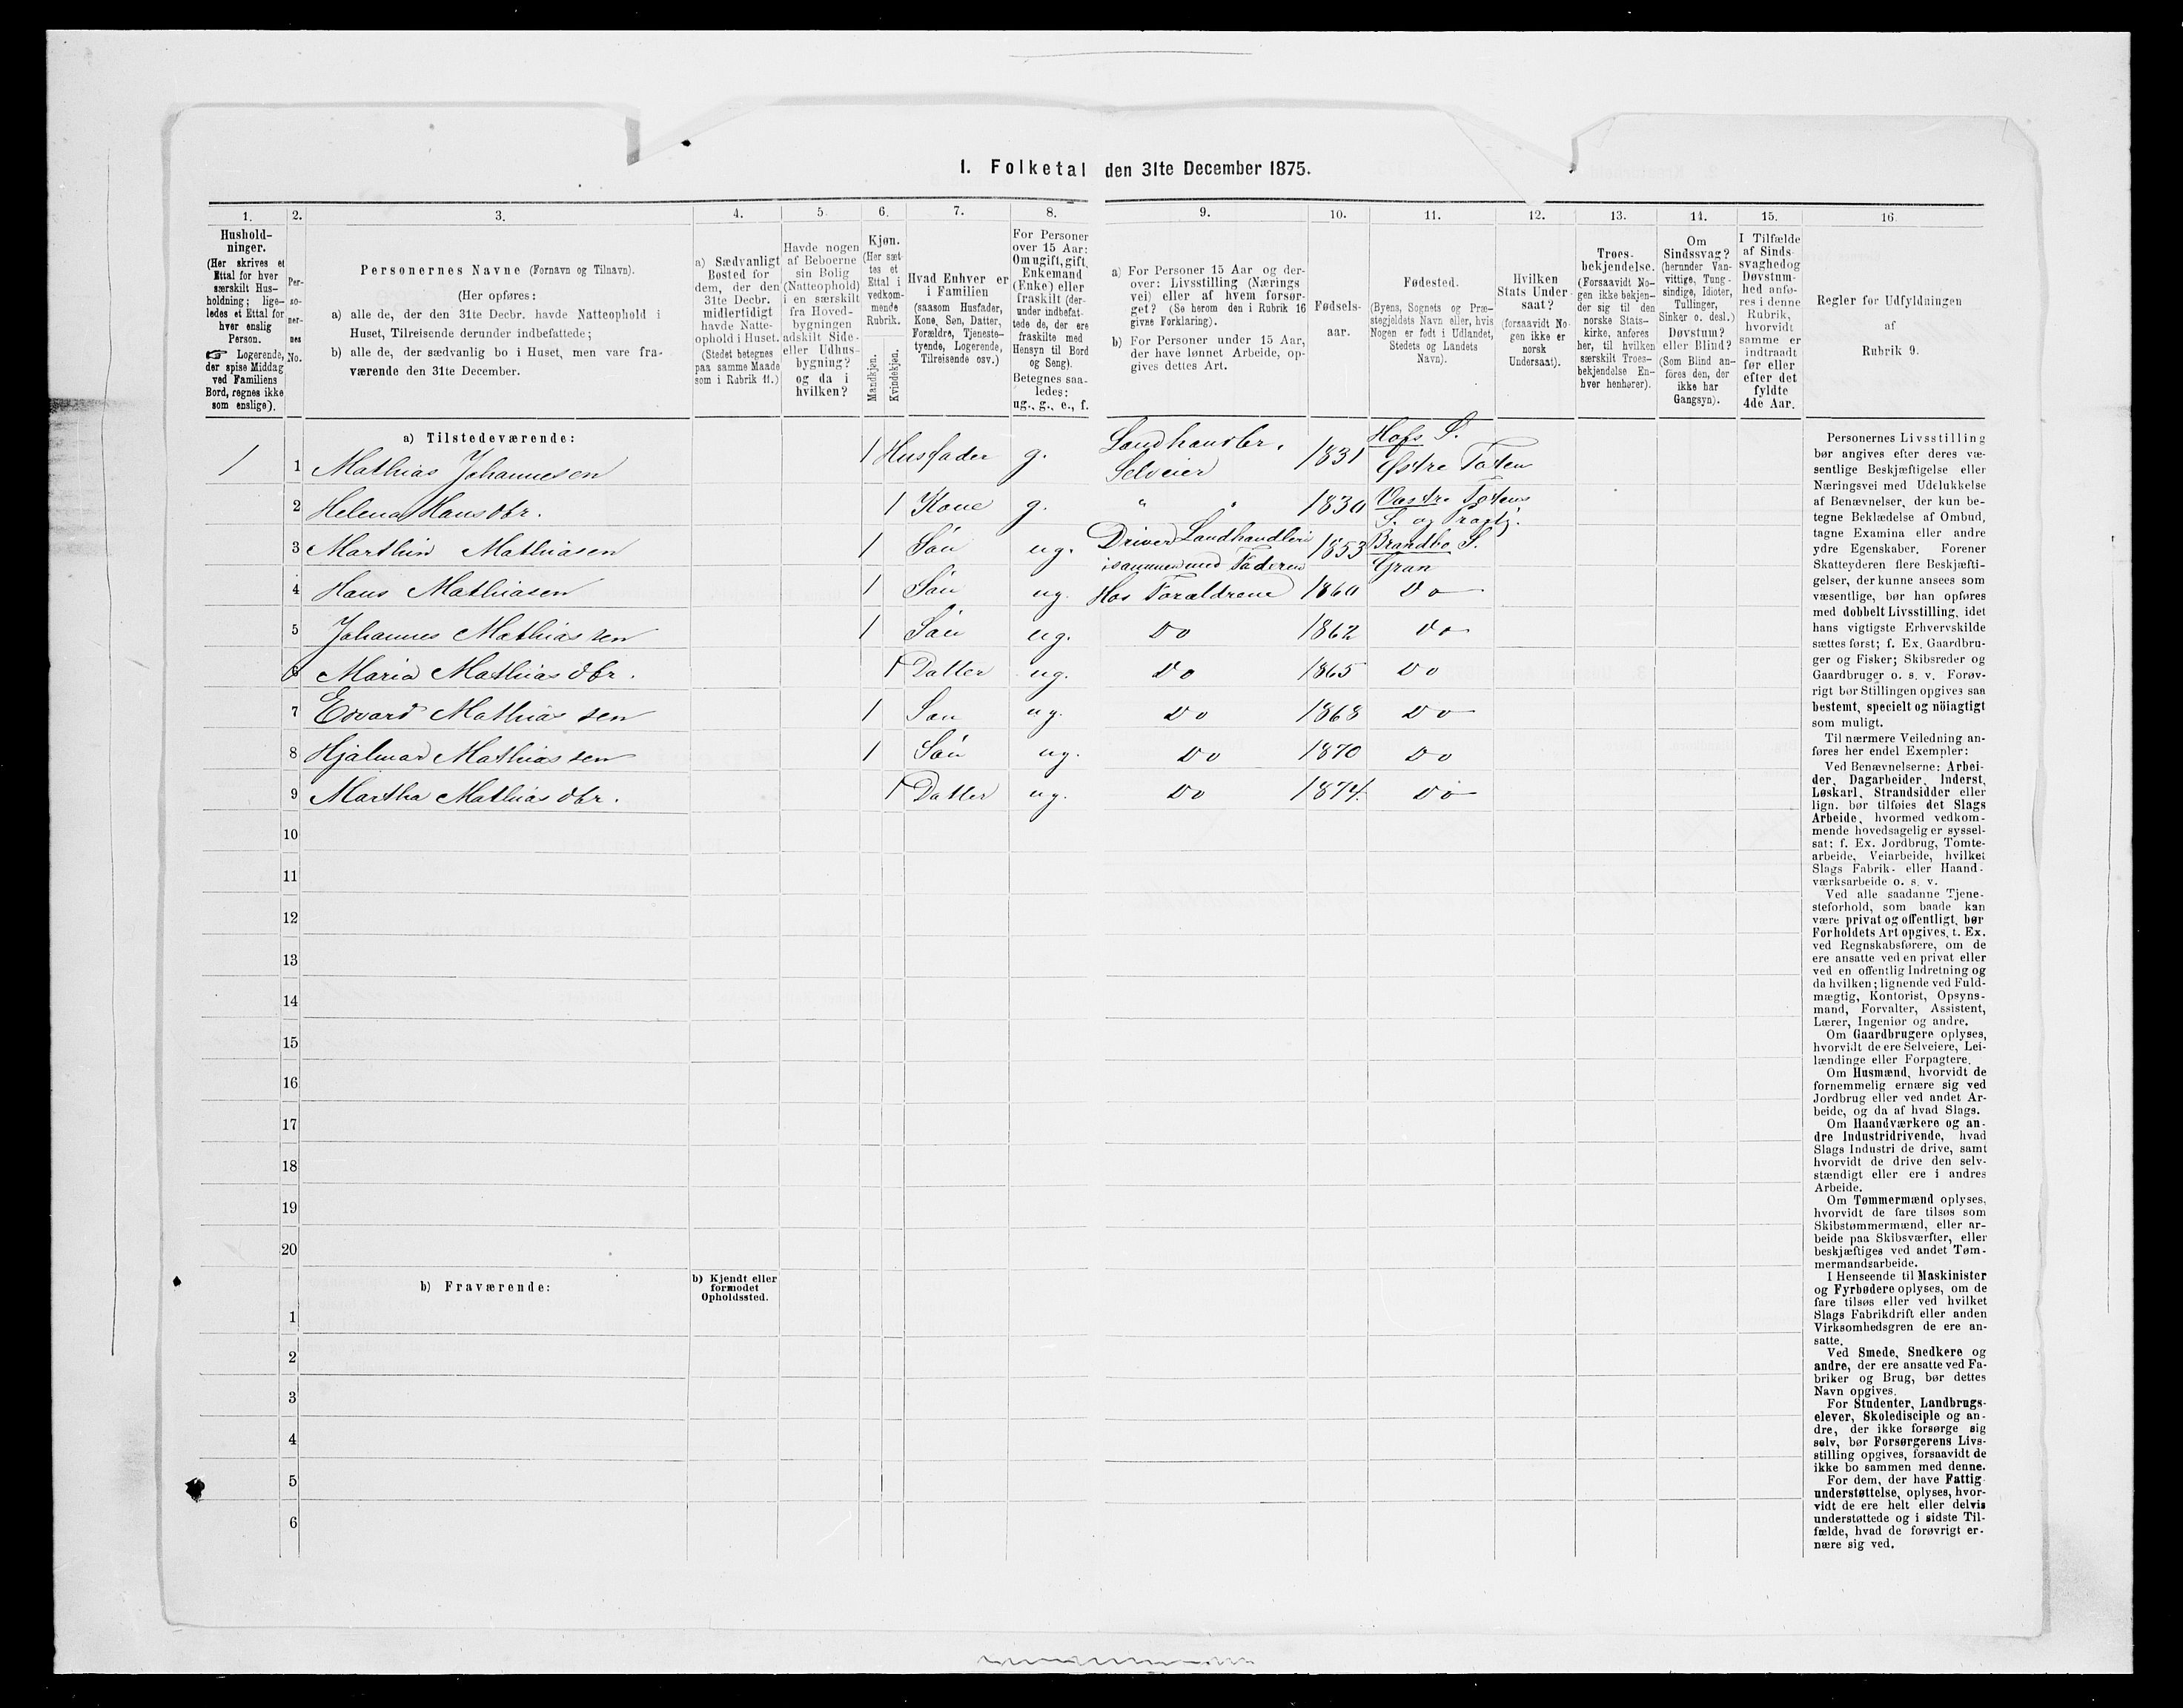 I. Folketal den 31te December 1875.
1.
Hushold-
ninger.
(Her skrives et
Ettal for hver
særskilt Hus-
holdning; lige-
ledes et Ettal for
hver enslig
Person.
☞ Logerende,
der spise Middag
ved Familiens
Bord, regnes ikke
som enslige).
2.
Per-
so-
ner-
nes
No.
3.
Personernes Navne (Fornavn og Tilnavn).
(Her opføres:
a) alle de, der den 31te Decbr. havde Natteophold i
Huset, Tilreisende derunder indbefattede;
b) alle de, der sædvanlig bo i Huset, men vare fra-
værende den 31te December.
4.
a) Sædvanligt
Bosted for
dem, der den
31te Decbr.
midlertidigt
havde Natte-
ophold i Huset.
(Stedet betegnes
paa samme Maade
som i Rubrik 11.)
5.
Havde nogen
af Beboerne
sin Bolig
(Natteophold)
i en særskilt
fra Hoved-
bygningen
adskilt Side-
eller Udhus-
bygning?
og da i
hvilken?
6.
Kjøn.
(Her sæt-
tes et
Ettal i
vedkom-
mende
Rubrik.
Mandkjøn.
Kvindekjøn.
7.
Hvad Enhver er
i Familien
(saasom Husfader,
Kone, Søn, Datter,
Forældre, Tjeneste-
tyende, Logerende,
Tilreisende osv.)
8.
For Personer
over 15 Aar:
Om ugift, gift,
Enkemand
(Enke) eller
fraskilt (der-
under indbefat-
tede de, der ere
fraskilte med
Hensyn til Bord
og Seng).
Betegnes saa-
ledes:
ug., g., e., f.
9.
a) For Personer 15 Aar og der-
over: Livsstilling (Nærings
vei) eller af hvem forsør-
get? (Se herom den i Rubrik 16
givne Forklaring).
b) For Personer under 15 Aar,
der have lønnet Arbeide, op-
gives dettes Art.
10.
Fødsels-
aar.
11.
Fødested.
(Byens, Sognets og Præ-
stegjeldets Navn eller, hvis
Nogen er født i Udlandet,
Stedets og Landets
Navn).
12.
Hvilken
Stats Under-
saat?
(forsaavidt No-
gen ikke er
norsk
Undersaat).
13.
Troes-
bekjendelse.
(Forsaavidt No-
gen ikke bekjen-
der sig til den
norske Stats-
kirke, anføres
her, til hvilken
særskilt Troes-
bekjendelse En-
hver henhører).
14.
Om
Sindssvag?
(herunder Van-
vittige, Tung-
sindige, Idioter,
Tullinger,
Sinker o. desl.)
Døvstum?
eller Blind?
(Som Blind an-
føres den, der
ikke har
Gangsyn).
15.
I Tilfælde
af Sinds-
svaghed og
Døvstum-
hed anfø-
res i denne
Rubrik,
hvorvidt
samme er
indtraadt
før eller
efter det
fyldte
4de Aar.
16.
Regler for Udfyldningen
af
Rubrik 9.
a) Tilstedeværende:
1 1 Mathias Johannesen 1 Husfader g. Landhandler. Selveier 1831 Hofs S. Østre Toten
2 Helena Hansdtr. 1 Kone g. " " 1830 Vestre Totens S. og Præstgj.
3 Marthin Mathiasen 1 Søn ug. Driver Landhandleri isammen med Faderen 1853 Brandbo S. Gran
4 Hans Mathiasen 1 Søn ug. Hos Forældrene 1860 Do
5 Johannes Mathiassen 1 Søn ug. Do 1862 Do
6 Maria Mathiasdtr. 1 Datter ug. Do 1865 Do
7 Edvard Mathiassen 1 Søn ug. Do 1868 Do
8 Hjalmar Mathiassen 1 Søn ug. Do 1870 Do
9 Martha Mathiasdtr. 1 Datter ug. Do 1874. Do
10
11
12
13
14
15
16
17
18
19
20
b) Fraværende:
b) Kjendt eller
formodet
Opholdssted.
1
2
3
4
5
6
Personernes Livsstilling
bør angives efter deres væ-
sentlige Beskjæftigelse eller
Næringsvei med Udelukkelse
af Benævnelser, der kun be-
tegne Beklædelse af Ombud,
tagne Examina eller andre
ydre Egenskaber. Forener
Skatteyderen flere Beskjæfti-
gelser, der kunne ansees som
væsentlige, bør han opføres
med dobbelt Livsstilling, idet
hans vigtigste Erhvervskilde
sættes først; f. Ex. Gaardbru-
ger og Fisker; Skibsreder og
Gaardbruger o. s. v. Forøv-
rigt bør Stillingen opgives saa
bestemt, specielt og nöiagtigt
som muligt.
Til nærmere Veiledning an-
føres her endel Exempler:
Ved Benævnelserne: Arbei-
der, Dagarbeider, Inderst,
Løskarl, Strandsidder eller
lign. bør tilføies det Slags
Arbeide, hvormed vedkom-
mende hovedsagelig er syssel-
sat; f. Ex. Jordbrug, Tomte-
arbeide, Veiarbeide, hvilket
Slags Fabrik- eller Haand-
værksarbeide o. s. v.
Ved alle saadanne Tjene-
steforhold, som baade kan
være privat og offentligt, bør
Forholdets Art opgives, t. Ex.
ved Regnskabsførere, om de
ere ansatte ved en privat eller
ved en offentlig Indretning og
da hvilken; lignende ved Fuld-
mægtig, Kontorist, Opsyns-
mand, Forvalter, Assistent,
Lærer, Ingeniør og andre.
Om Gaardbrugere oplyses,
hvorvidt de ere Selveiere, Lei-
lændinge eller Forpagtere.
Om Husmænd, hvorvidt de
fornemmelig ernære sig ved
Jordbrug eller ved andet Ar-
beide, og da af hvad Slags.
Om Haandværkere og an-
dre Industridrivende, hvad
Slags Industri de drive, samt
hvorvidt de drive den selv-
stændigt eller ere i andres
Arbeide.
Om Tømmermænd oplyses,
hvorvidt de fare tilsøs som
Skibstømmermænd, eller ar-
beide paa Skibsværfter, eller
beskjæftiges ved andet Tøm-
mermandsarbeide.
I Henseende til Maskinister
og Fyrbødere oplyses, om de
fare tilsøs eller ved hvilket
Slags Fabrikdrift eller anden
Virksomhedsgren de ere an-
satte.
Ved Smede, Snedkere og
andre, der ere ansatte ved Fa-
briker og Brug, bør dettes
Navn opgives.
For Studenter, Landbrugs-
elever, Skoledisciple og an-
dre, der ikke forsørge sig
selv, bør Forsørgerens Livs-
stilling opgives, forsaavidt de
ikke bo sammen med denne.
For dem, der have Fattig-
understøttelse, oplyses, hvor-
vidt de ere helt eller delvis
understøttede og i sidste Til-
fælde, hvad de forøvrigt er-
nære sig ved.